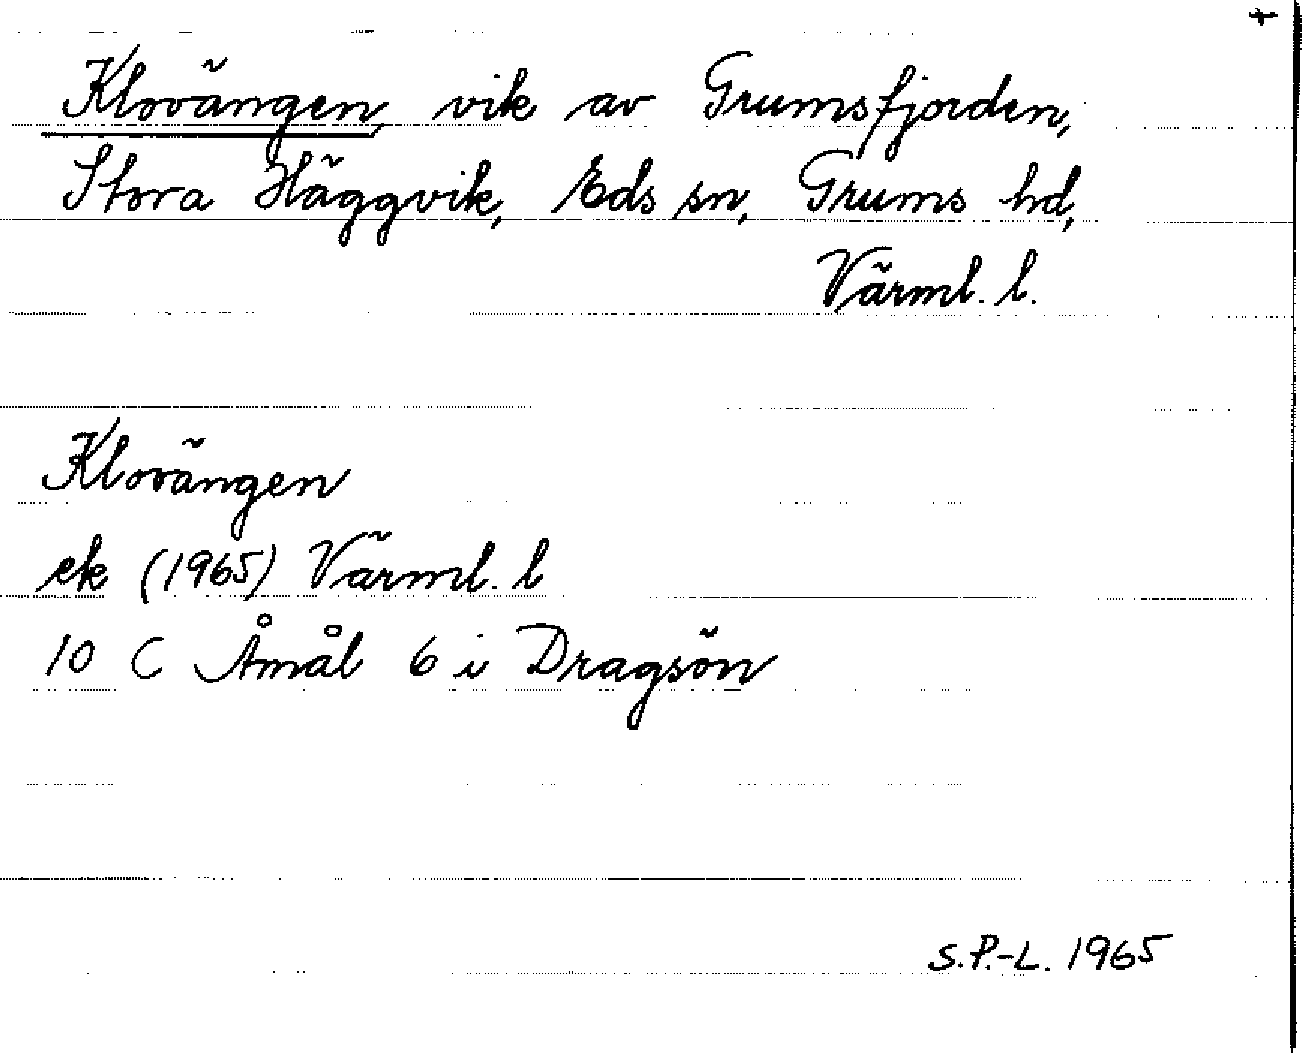 Klovängen, vik av Grumsfjorden,
Stora Häggvik, Eds sn, Grums hd,
Värml. l.
Klovängen
ek (1965) Värml. l
10 C Åmål 6 i Dragsön
S.P.-L. 1965